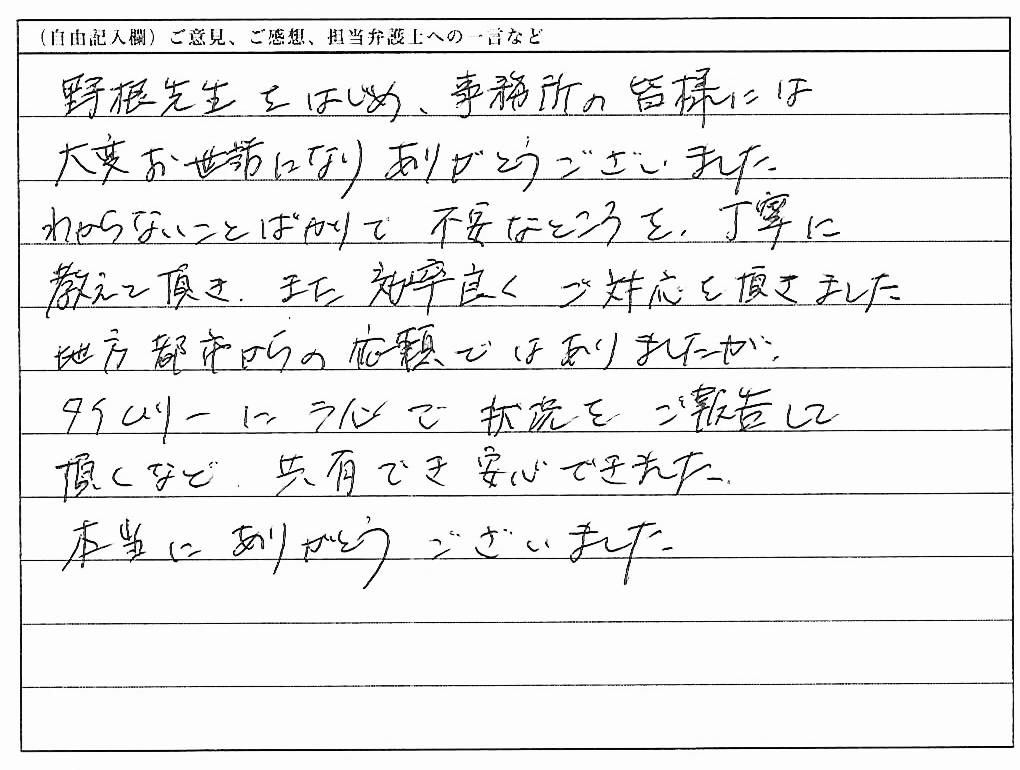 （自由記入欄）ご意見、ご感想、担当弁護士への一言など
野根先生をはじめ、事務所の皆様には
大変お世話になりありがとうございました。
わからないことばかりで不安なところを、丁寧に
教えて頂き、また効率良くご対応を頂きました
地方都市からの依頼ではありましたが、
タイムリーにラインで状況をご報告して
頂くなど、共有でき安心できました。
本当にありがとうございました。